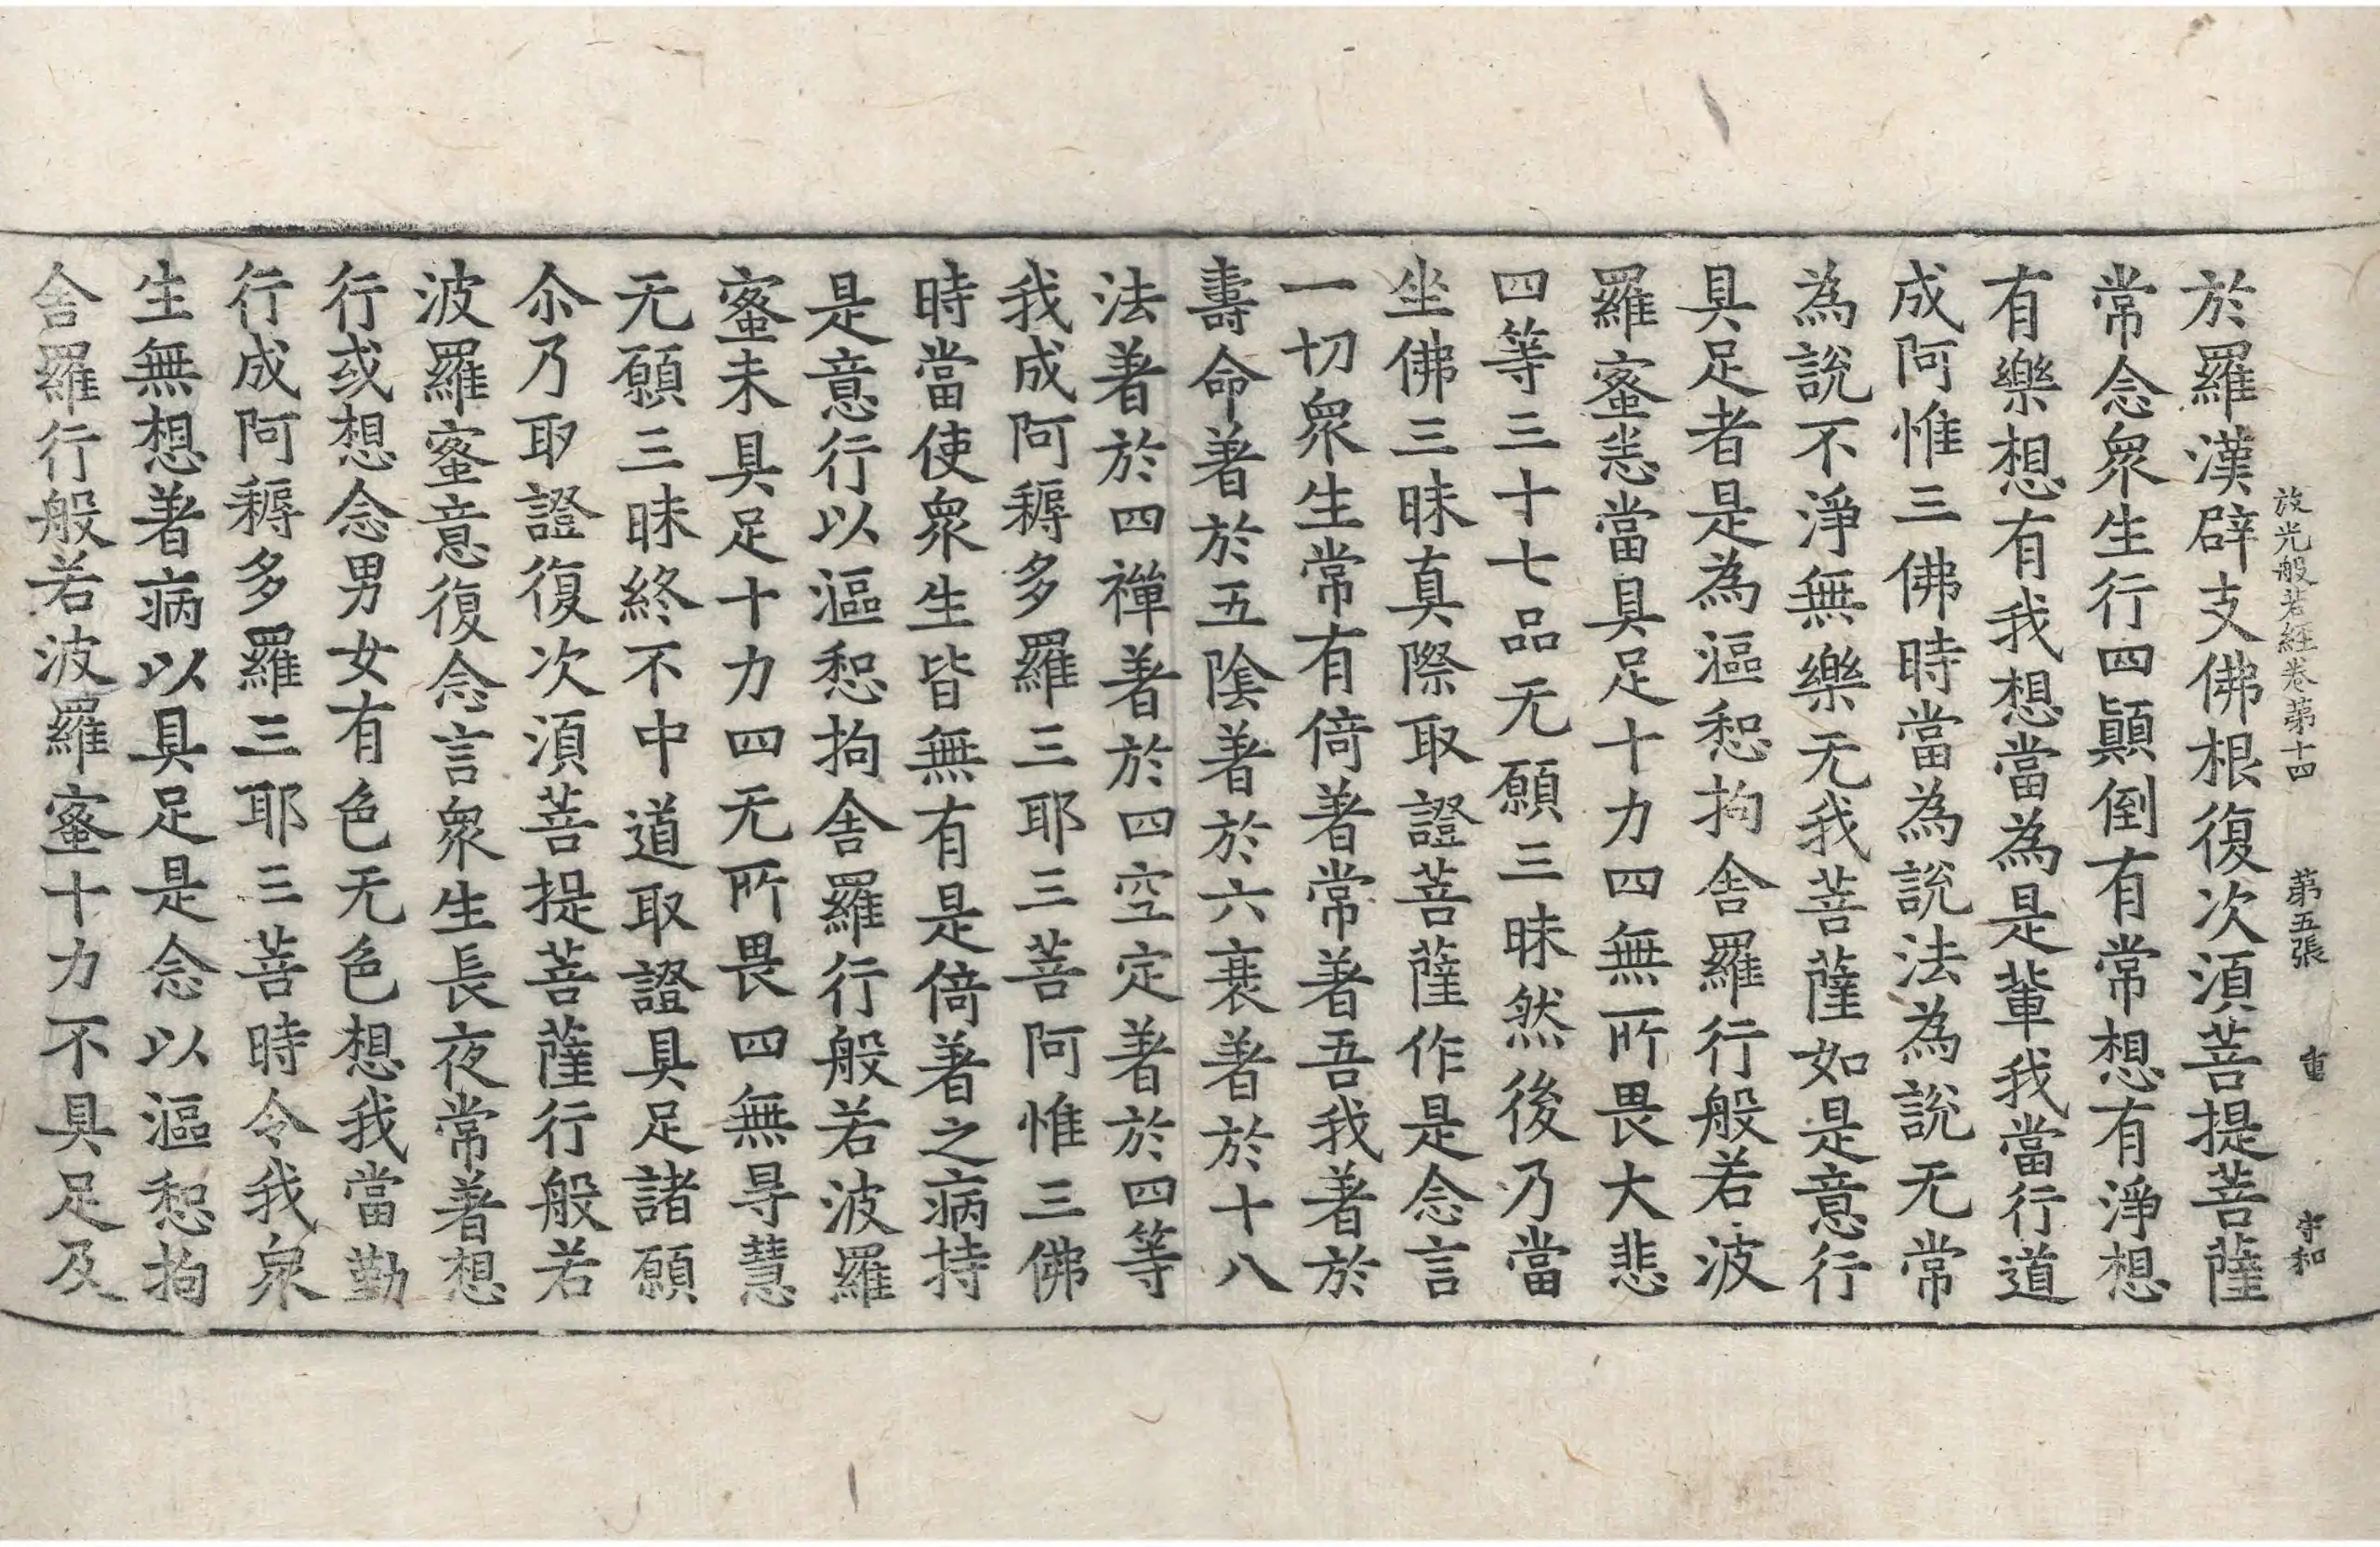 放光般若經卷第十四　第五張　重　守和
於羅漢辟支佛根復次須菩提菩薩
常念眾生行四顛倒有常想有淨想
有樂想有我想當為是輩我當行道
成阿惟三佛時當為說法為說无常
為說不淨無樂无我菩薩如是意行
具足者是為漚惒拘舍羅行般若波
羅蜜悉當具足十力四無所畏大悲
四等三十七品无願三昧然後乃當
坐佛三昧真際取證菩薩作是念言
一切眾生常有倚著常著吾我著於
壽命著於五陰著於六衰著於十八
法著於四禪著於四空定著於四等
我成阿耨多羅三耶三菩阿惟三佛
時當使眾生皆無有是倚著之病持
是意行以漚惒拘舍羅行般若波羅
蜜未具足十力四无所畏四無㝵慧
无願三昧終不中道取證具足諸願
尒乃取證復次須菩提菩薩行般若
波羅蜜意復念言眾生長夜常著想
行或想念男女有色无色想我當勤
行成阿耨多羅三耶三菩時令我眾
生無想著病以具足是念以漚惒拘
舍羅行般若波羅蜜十力不具足及